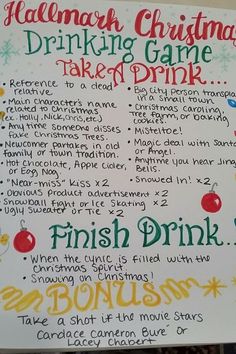 Hallmark Christmas
Drinking Game
Take A Drink...
• Reference to a dead
relative.
• Main Character's name
related to Christmas
(ex. Holly, Nick, Chris, etc)
• Any time someone disses
Fake Christmas Trees.
• Newcomer partakes in old
family or town tradition.
• Hot Chocolate, Apple Cider,
or Egg Nog
• "Near-miss" kiss x2
• Obvious Product advertisement x2
• Snowball Fight or Ice Skating x2
• Ugly Sweater or Tie x2
• Big City person transplanted
in a small town
• Christmas caroling,
Tree farm, or baking
cookies.
• Misteltoe!
• Magic deal with Santa
or Angel.
• Anytime you hear Jingle
Bells.
• Snowed in! x2
Finish Drink...
• When the cynic is filled with the
Christmas Spirit
• Snowing on Christmas!
BONUS
Take a shot if the movie stars
Candace Cameron Bure' or
Lacey Chabert